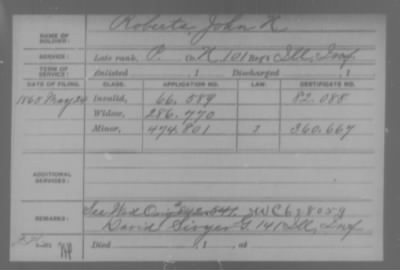 NAME OF SOLDIER: Roberts, John H
SERVICE: Late rank, P. Co. K, 101 Reg't Ill, Inf.
TERM OF SERVICE: Enlisted , 1 Discharged , 1
DATE OF FILING. CLASS. APPLICATION NO. LAW. CERTIFICATE NO.
1865 May 24 Invalid, 66.589 82.088
Widow, 286.770
Minor, 474.801 360.667
ADDITIONAL SERVICES:
REMARKS: See Wid Orig 342.541. WC 638059
David G. 141 Ill, Inf
Died , 1 , at